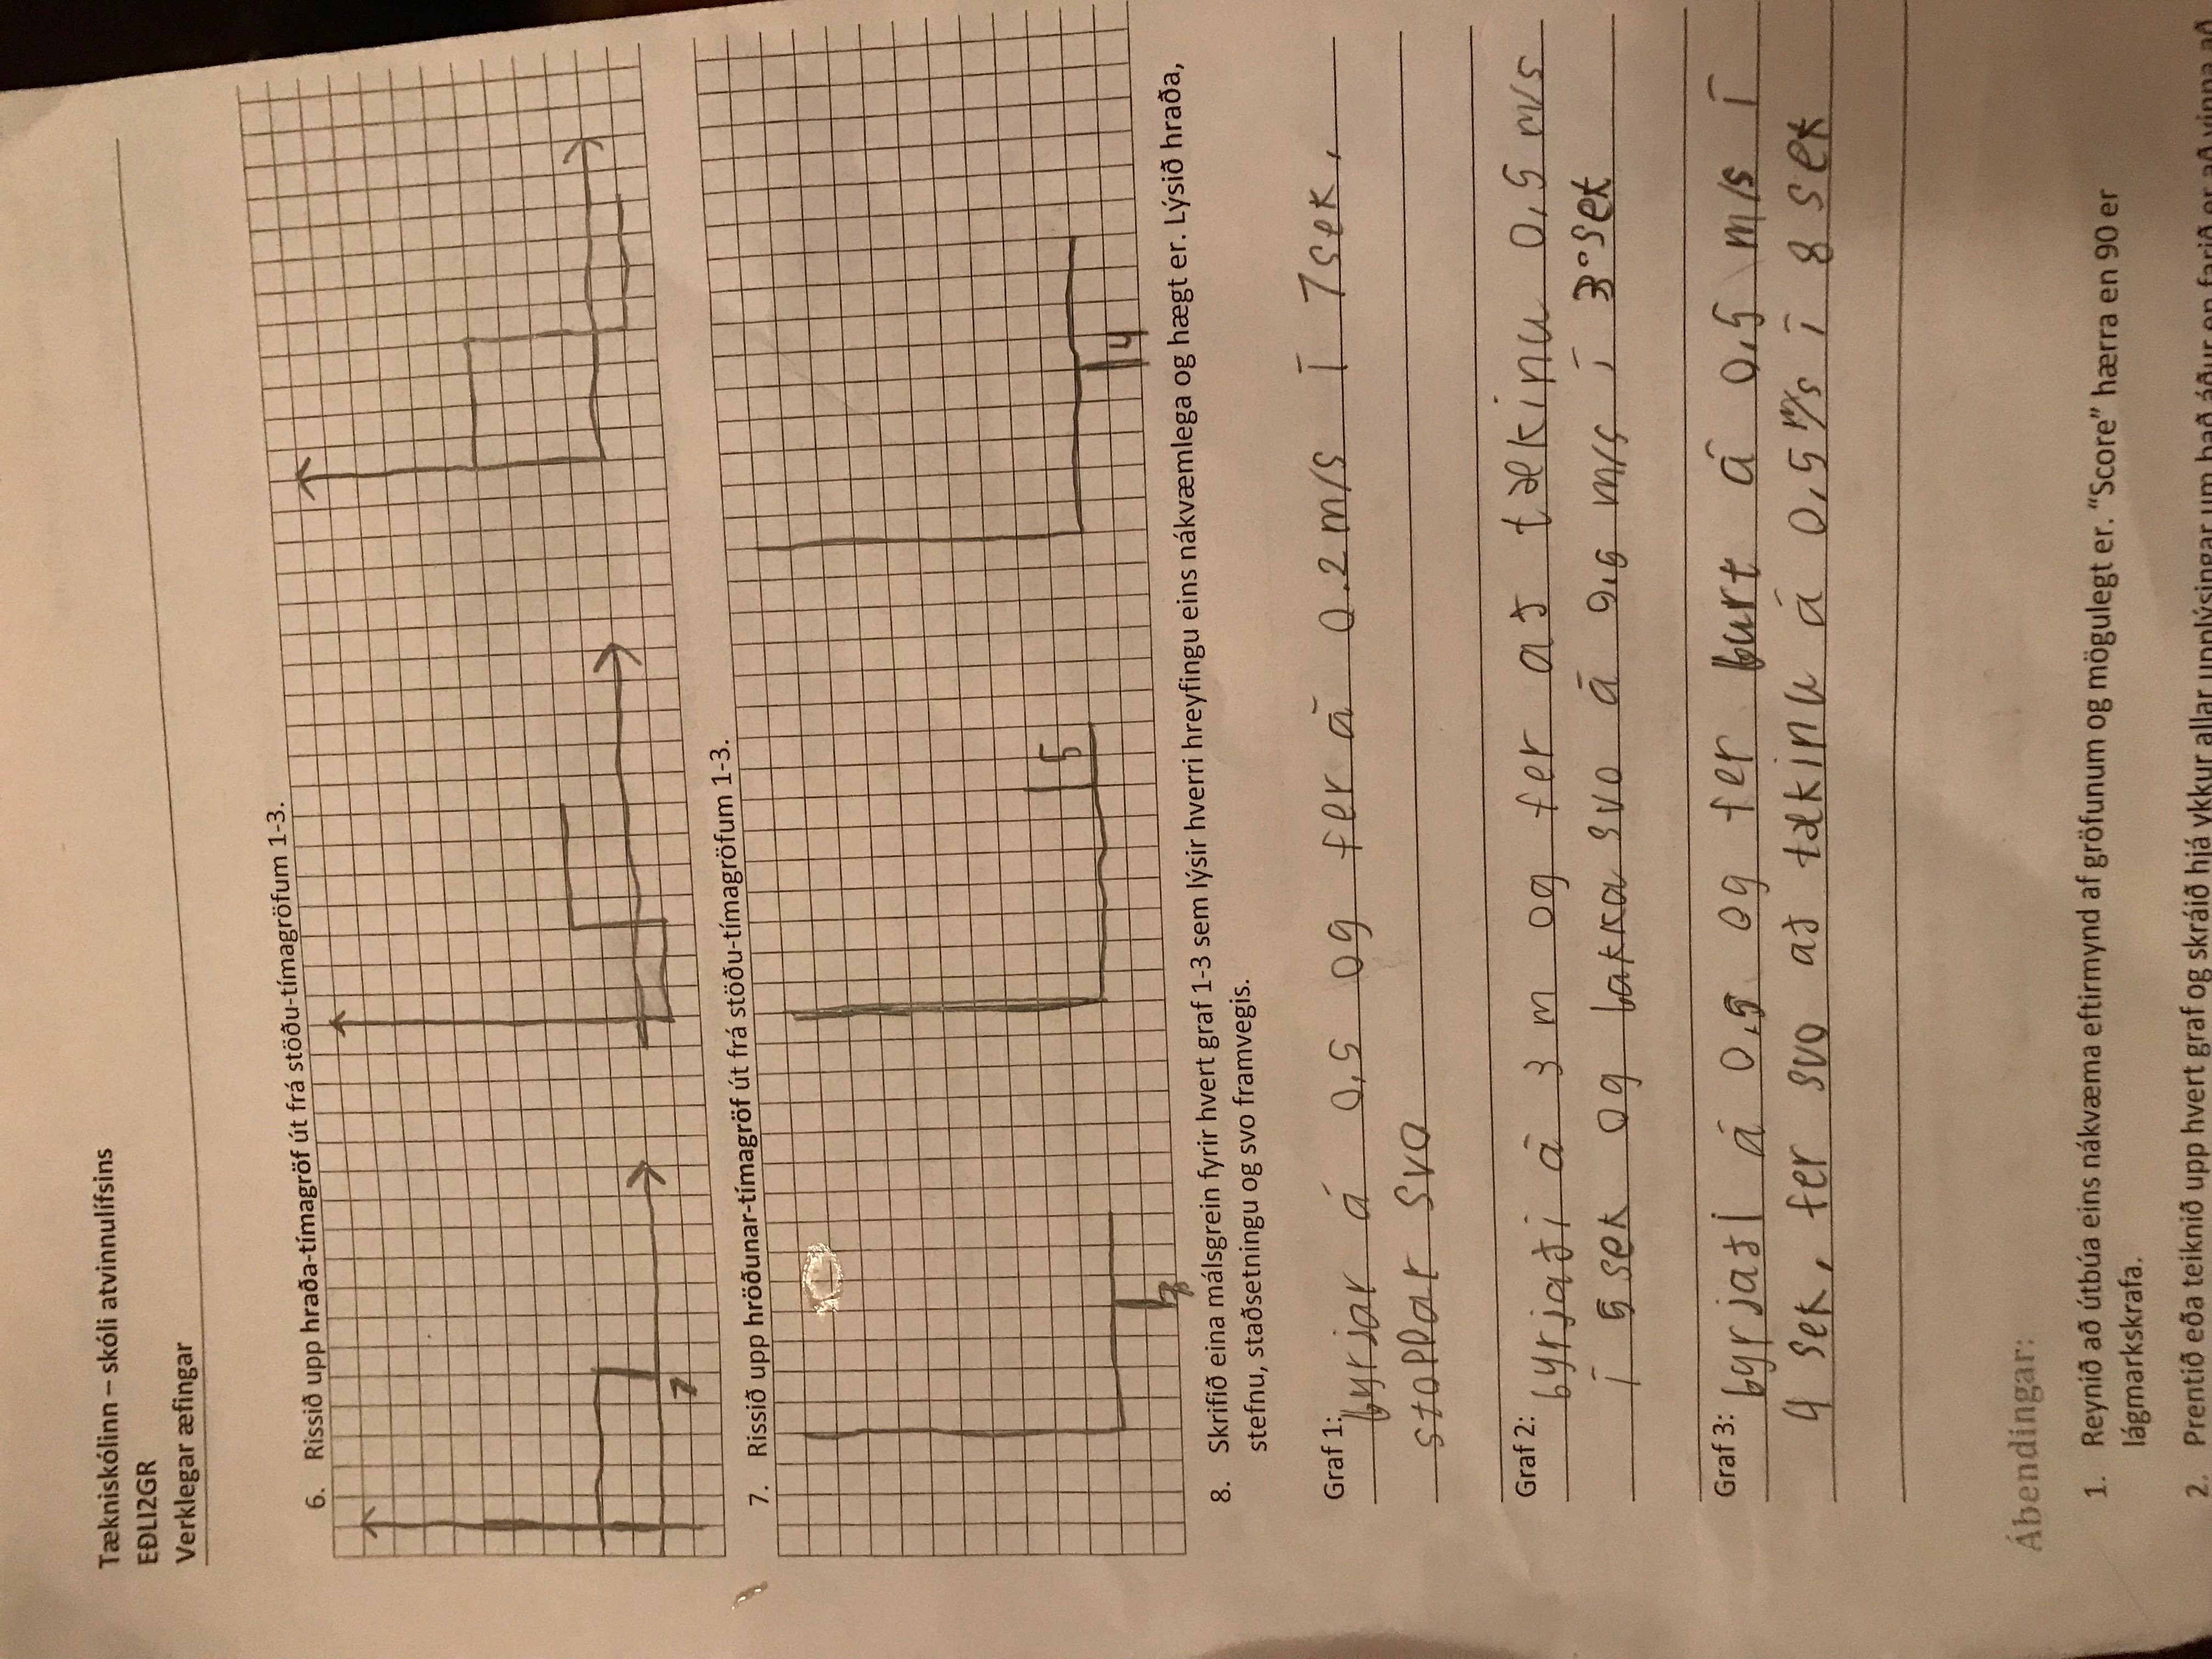 Tækniskólinn – skóli atvinnulífsins
EÐLI2GR
Verklegar æfingar
6. Rissið upp hraða-tímagröf út frá stöðu-tímagröfum 1-3.
7
7. Rissið upp hröðunar-tímagröf út frá stöðu-tímagröfum 1-3.
5
4
8. Skrifið eina málsgrein fyrir hvert graf 1-3 sem lýsir hverri hreyfingu eins nákvæmlega og hægt er. Lýsið hraða,
stefnu, staðsetningu og svo framvegis.
Graf 1: byrjar á 0,5 og fer á 0.2 m/s í 7 sek,
stoppar svo
Graf 2: byrjaði á 3 m og fer að tækinu 0,5 m/s
í 5 sek og bakka svo á 0,5 m/s í 3 sek
Graf 3: byrjaði á 0,5 og fer burt á 0,5 m/s í
4 sek, fer svo að tækinu á 0,5 m/s í 8 sek
Ábendingar:
1. Reynið að útbúa eins nákvæma eftirmynd af gröfunum og mögulegt er. “Score” hærra en 90 er
lágmarkskrafa.
2. Prentið eða teiknið upp hvert graf og skráið hjá ykkur allar upplýsingar um það áður en farið er að vinna að